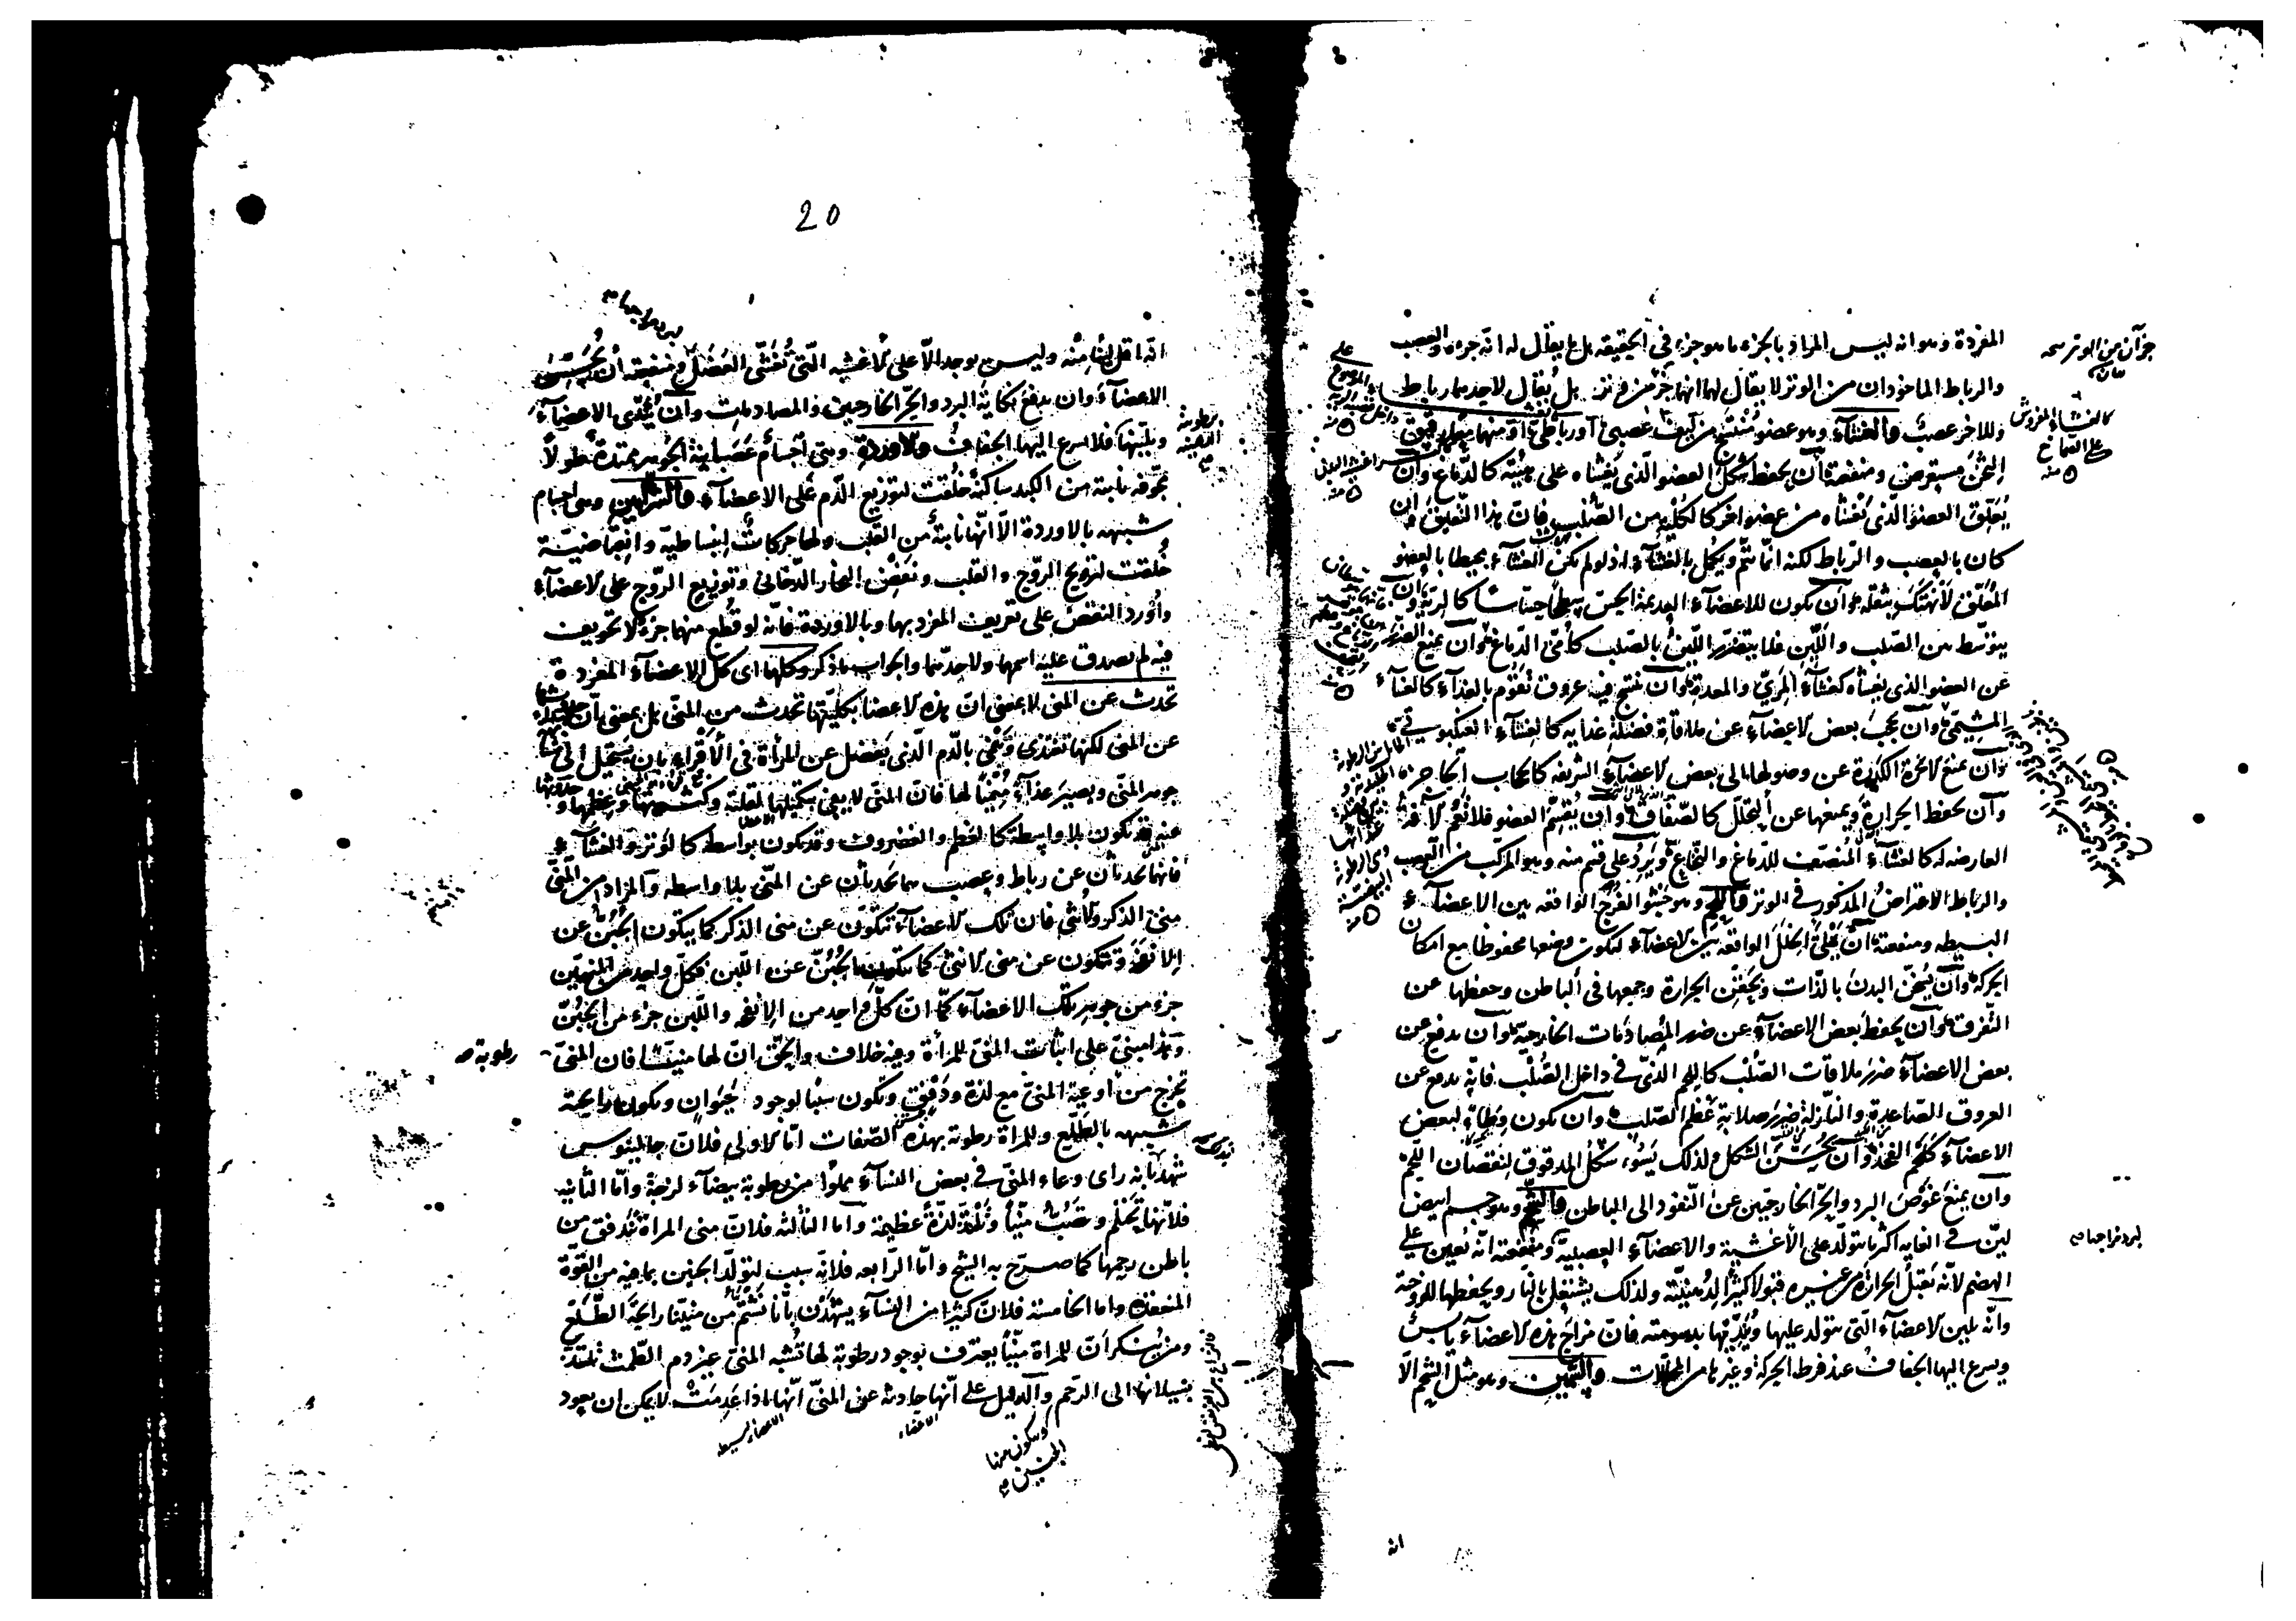 المفردة وهو انه ليس المراد بالجزء ما هو جزء في الحقيقه بل ما يقال له انه جزءه والعصب
والرباط الماخوذان من الوتر لا يقال لهما انهما جزء من وتر بل يقال لاحدهما رباط
وللاخر عصب والغشآء وهو عضو منتسج من ليف عصبي او رباطي او منهما رقيق
الثخن مستعرض ومنفعته ان يحفظ شكل العضو الذي يغشاه على هيئته كالدماغ وان
يعلق العضو الذي يغشاه من عضو اخر كالكلية من الصلب فان هذا التعليق وان
كان بالعصب والرباط لكنه انما يتم ويكمل بالغشآء اذ لو لم يكن الغشآء محيطا بالعضو
المعلق لانهتك بثقله وان يكون للاعضآء العديمة الحس سطح حساس كالرية وان
يتوسط بين الصلب واللين فلا يتضرر اللين بالصلب كأمي الدماغ وان يمنع الضرر
عن العضو الذي يغشاه كغشآء المري والمعدة وان ينتسج فيه عروق تقوم بالغذآء كالغشآء
المشيمي وان يحجب بعض الاعضآء عن ملاقاة فضلة غذايه كالغشآء العنكبوتي
وان يمنع الابخرة الكدرة عن وصولها الى بعض الاعضآء الشريفه كالحجاب الحاجز
وان يحفظ الحرارة ويمنعها عن التحلل كالصفاق وان يقسم العضو فلا تعم الآفة
العارضه له كالغشآء المنصف للدماغ والنخاع ويرد على قسم منه وهو المركب من العصب
والرباط الاعتراض المذكور في الوتر واللحم وهو حشو الفرج الواقعه بين الاعضآء
البسيطه ومنفعته ان يملأ الخلل الواقعه بين الاعضآء لتكون وضعها محفوظا مع امكان
الحركة وان يسخن البدن بالذات ويحقن الحرارة وجمعها في الباطن وحفظها عن
التفرق وان يحفظ بعض الاعضآء عن ضرر المصادمات الخارجية وان يدفع عن
بعض الاعضآء ضرر ملاقات الصلب كاللحم الذي في داخل الصلب فانه يدفع عن
العروق الصاعدة والنازلة ضرر صلابة عظم الصلب وان يكون وطاء لبعض
الاعضآء كلحم الفخذ وان يحسن الشكل ولذلك يسوء شكل المدقوق لنقصان اللحم
وان يمنع غوص البرد والحر الخارجيين عن النفود الى الباطن والشحم وهو جسم ابيض
لين في الغايه اكثر ما يتولد على الأغشية والاعضآء العصبية ومنفعته انه يعين على
الهضم لانه يقبل الحرارة من غيره قبولا كثيرا لدهنيته ولذلك يشتعل بالنار ويحفظها للزوجته
وانه يلين الاعضآء التي يتولد عليها ويندّيها بدسومته فان مزاج هذه الاعضآء يابس
ويسرع اليها الجفاف عند فرط الحركة وغيرها من المحللات والسمين وهو مثل الشحم الا
انه
جزآن من الوتر
كالغشاء المفروش
على الصماخ
منه
لبرد مزاجها
20
انه اقل لينا منه وليس يوجد الا على الاغشيه التي تغشى العضل ومنفعته ان يسخن
الاعضآء وان يدفع نكاية البرد والحر الخارجين والمصادمات وان يندّى الاعضآء
ويلينها فلا يسرع اليها الجفاف والاوردة وهي اجسام عصبانية الجوهر ممتدة طولا
مجوفه نابتة من الكبد ساكنة خلقت لتوزيع الدم على الاعضآء والشرايين وهي اجسام
شبيهه بالاوردة الا انها نابتة من القلب ولها حركات انبساطية وانقباضية
خلقت لترويح الروح والقلب ونفض البخار الدخاني وتوزيع الروح على الاعضآء
واورد النقض على تعريف المفرد بها وبالاوردة فانه لو قطع منهما جزء لا تجويف
فيه لم يصدق عليه اسمها ولا حدهما والجواب ما ذكر وكلها اى كل الاعضآء المفردة
تحدث عن المني لا بمعنى ان هذه الاعضا بكليتها تحدث من المني بل بمعنى ان
عن المني لكنها تغتذى وتنمى بالدم الذي يفضل عن المرأة في الأقراء بان يستحيل الى
جوهر المني ويصير غذاء منميا لها فان المني لا يفي بتكميلها لقلته وكثرتها وعظمها و
عنه قد تكون بلا واسطة كالعظم والغضروف وقد تكون بواسطة كالوتر والغشآء
فانهما يحدثان عن رباط وعصب هما يحدثان عن المني بلا واسطه والمراد من المني
مني الذكر والانثى فان تلك الاعضآء تتكون عن مني الذكر كما يتكون الجبن عن
الانفحة وتتكون عن مني الانثى كما يتكون الجبن عن اللبن فكل واحد من المنيين
جزء من جوهر تلك الاعضآء كما ان كل واحد من الانفحه واللبن جزء من الجبن
وهذا مبني على اثبات المني للمرأة وفيه خلاف والحق ان لها منيا فان المني
يخرج من أوعية المني مع لذة ودفق ويكون سببا لوجود الحيوان ويكون رايحته
شبيهه بالطلع وللمراة رطوبة بهذه الصفات اما الاولى فلان جالينوس
شهد بانه راى وعاء المني في بعض النسآء مملوا من رطوبة بيضآء لزجة واما الثانيه
فلانها تحتلم وتصب منيا وتلتذ لذة عظيمة واما الثالثه فلان مني المراة يندفق من
باطن رحمها كما صرح به الشيخ واما الرابعه فلانه سبب لتولد الجنين بما فيه من القوة
المنعقدة واما الخامسة فلان كثيرا من النسآء يشهدن بأنا نشتم من منينا رايحة الطلع
ومن ينكر ان للمراة منيا يعترف بوجود رطوبة لها تشبه المني عير دم الطمث تلتذ
بسيلانها الى الرحم والدليل على انها حادثه عن المني انها اذا عدمت لا يمكن ان يعود
رطوبة
الاعضاء
الاعضاء البسيطه
ويتكون منها
الجنين